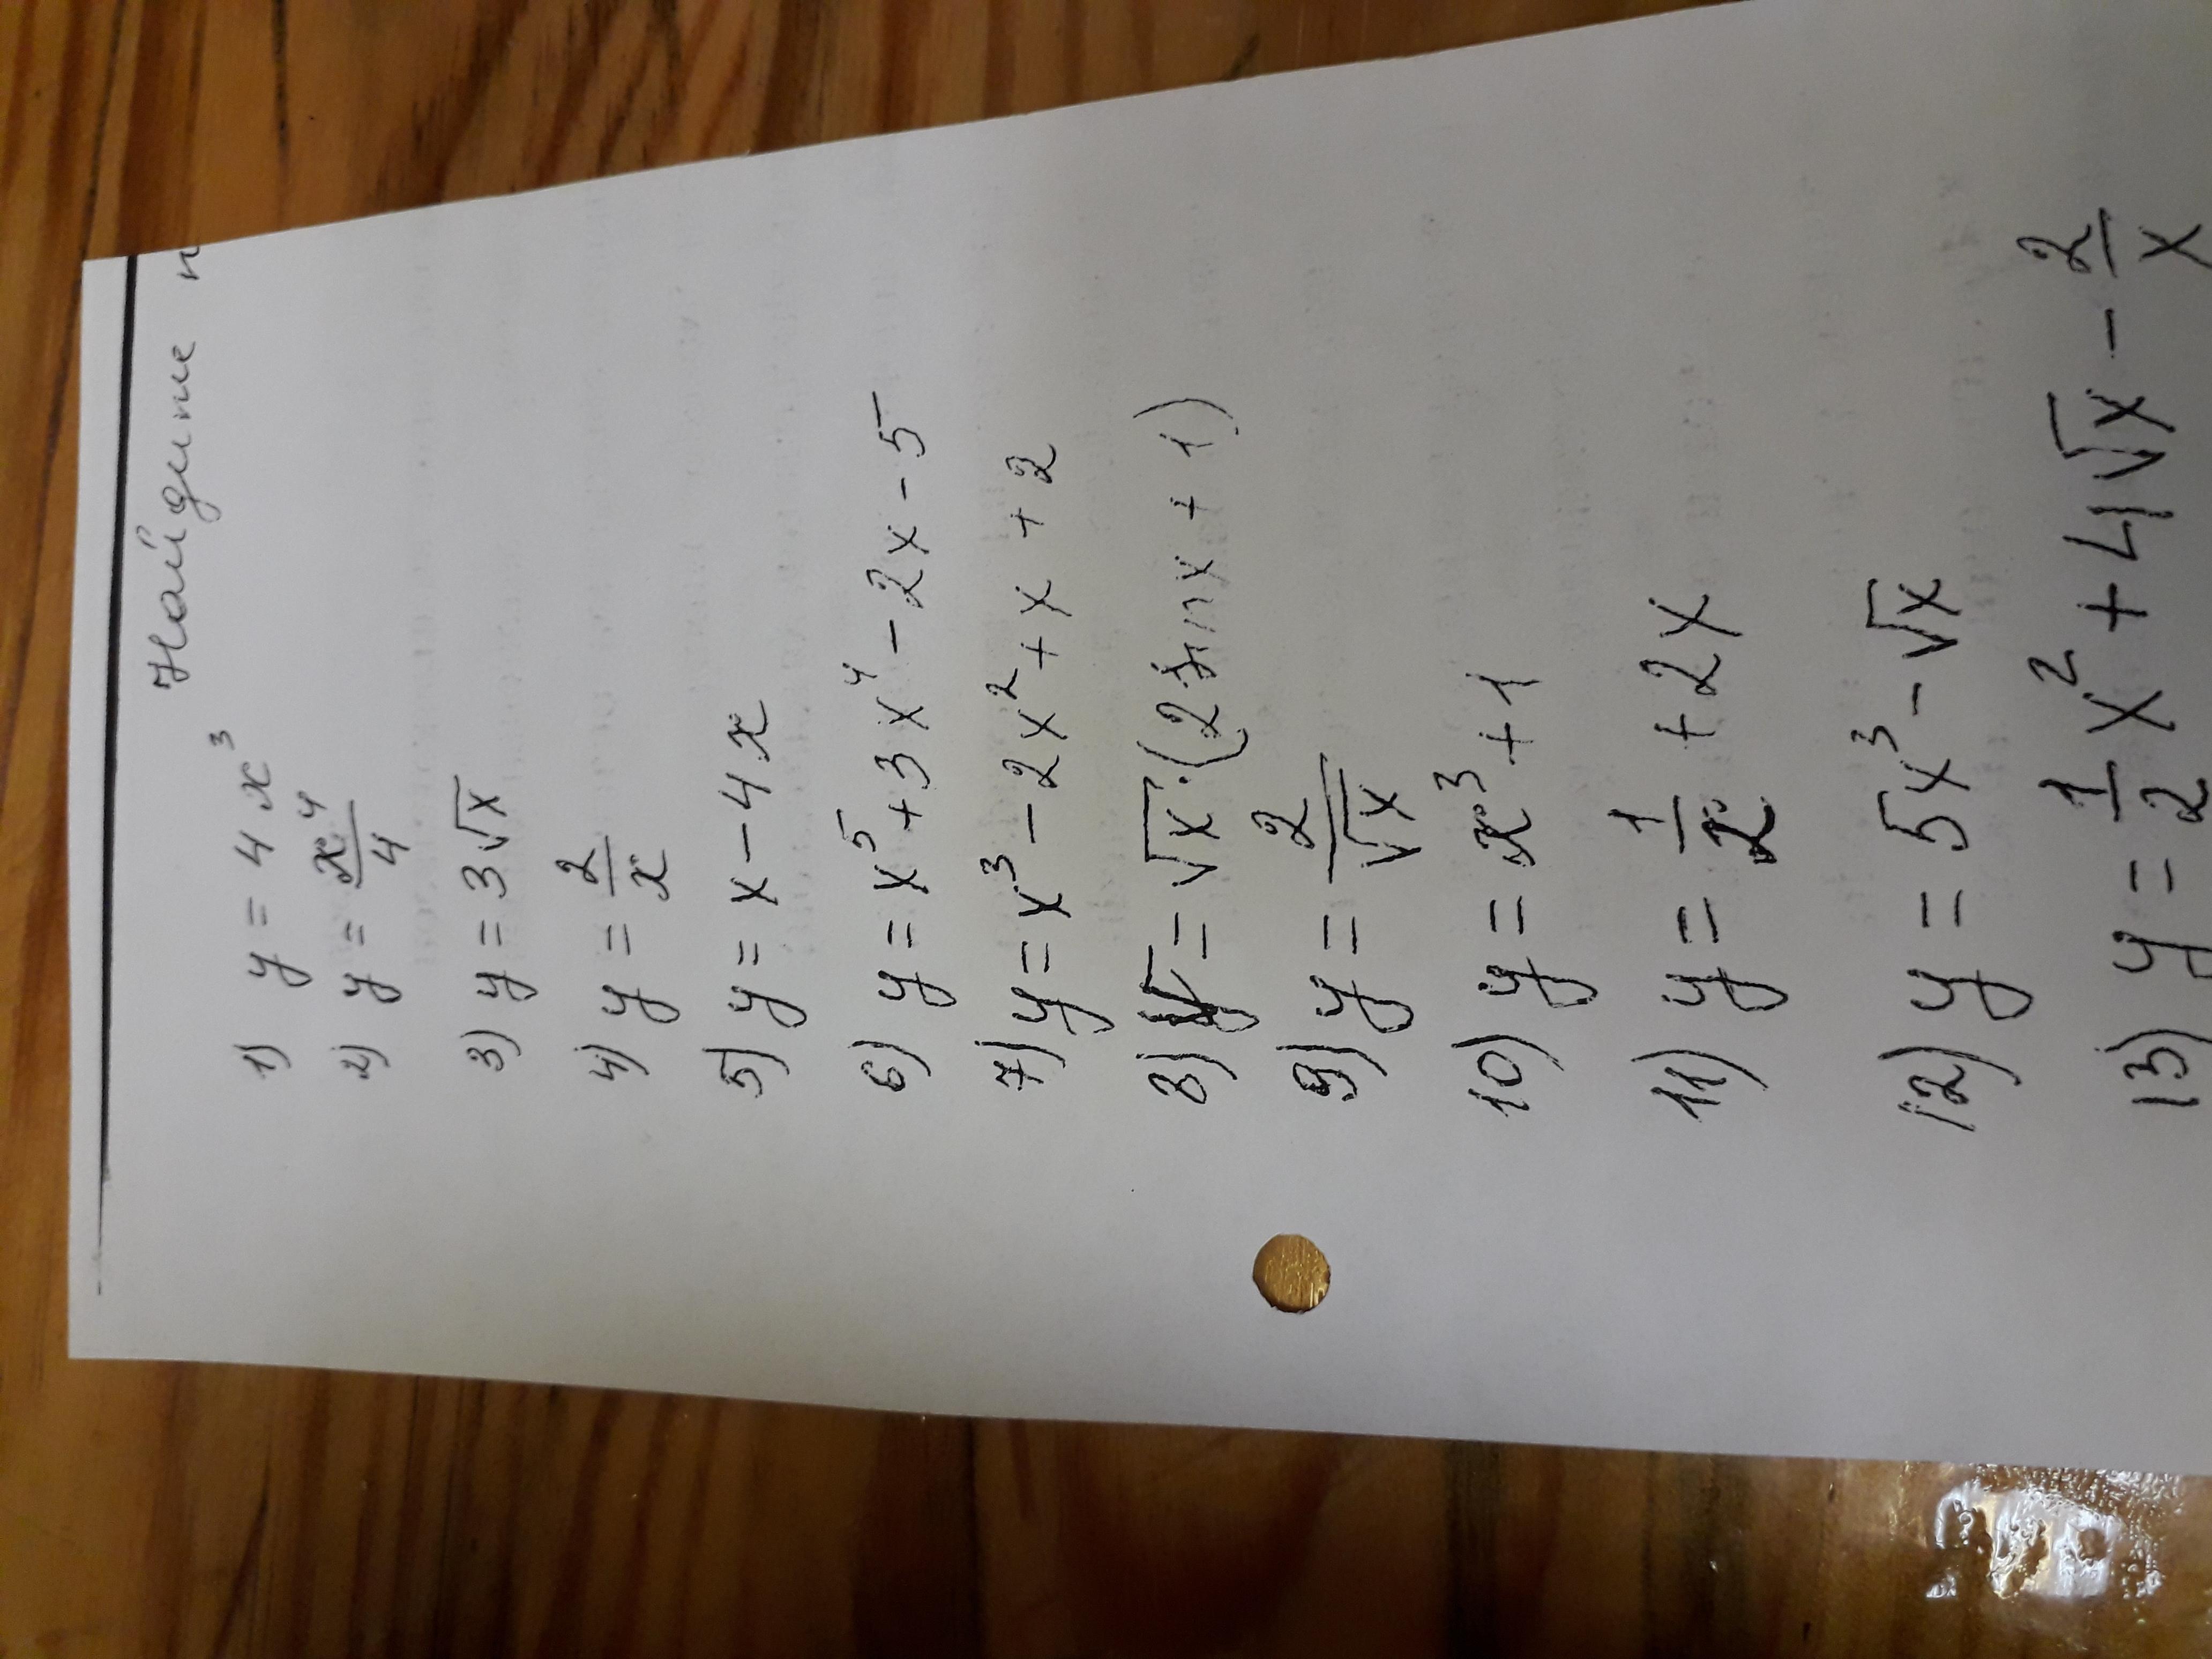 Найдите п
1) y = 4x³
2) y = x⁴/4
3) y = 3√x
4) y = 2/x
5) y = x - 4x
6) y = x⁵ + 3x⁴ - 2x - 5
7) y = x³ - 2x² + x + 2
8) y = √x · (2sinx + 1)
9) y = 2/√x
10) y = x³ + 1
11) y = 1/x + 2x
12) y = 5x³ - √x
13) y = 1/2 x² + 4√x - 2/x